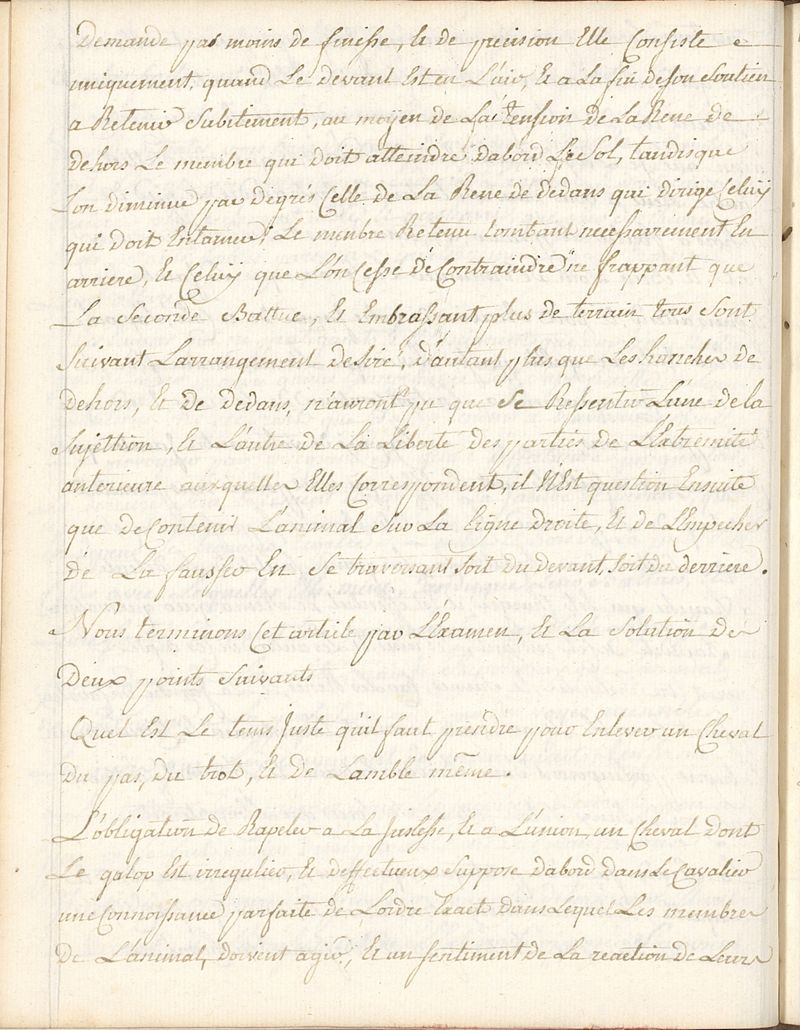 Demande pas moins de finesse, et de precision Elle Consiste
uniquement, quand Le devant Est en L'air, Et a La fin de son Soutien
a Retenir Subitement, au moyen de La tension de La Rene de
dehors Le membre qui doit atteindre d'abord Le Sol, tandis que
L'on diminue par Degrés Celle de La Rene de dedans qui dirige Celuy
qui doit Entamer; Le menbre Retenu tombant necessairement En
arriere, Et Celuy que L'on Cesse de Contraindre ne frappant que
La Seconde Battue, Et Embrassant plus de terrain tous Sont
Suivant L'arrangement desiré, d'autant plus que Les hanches de
Dehors, Et De Dedans, n'auront pu que Se Ressentir L'une de la
Sujettion, Et L'autre de La Liberté des parties de L'Extremité
anterieure auxquelles Elles Correspondent, il N'Est question Ensuite
que de Contenir L'animal Sur La Ligne droite, Et de L'Empecher
de La fausser En Se traversant Soit du devant, Soit du derriere.
Nous terminons Cet article par L'Examen, Et La Solution des
Deux points Suivants
Quel Est Le tems Juste qu'il faut prendre pour Enlever un Cheval
Du pas, Du trot, Et de L'amble même.
L'obligation de Rapeler a La Justesse, Et a L'union, un Cheval Dont
Le galop Est irregulier, Et deffectueux Suppose d'abord dans Le Cavalier
une Connoissance parfaite de L'ordre Exact dans Lequel Les membres
De L'animal, doivent agir, Et un Sentiment de La reaction de Leurs